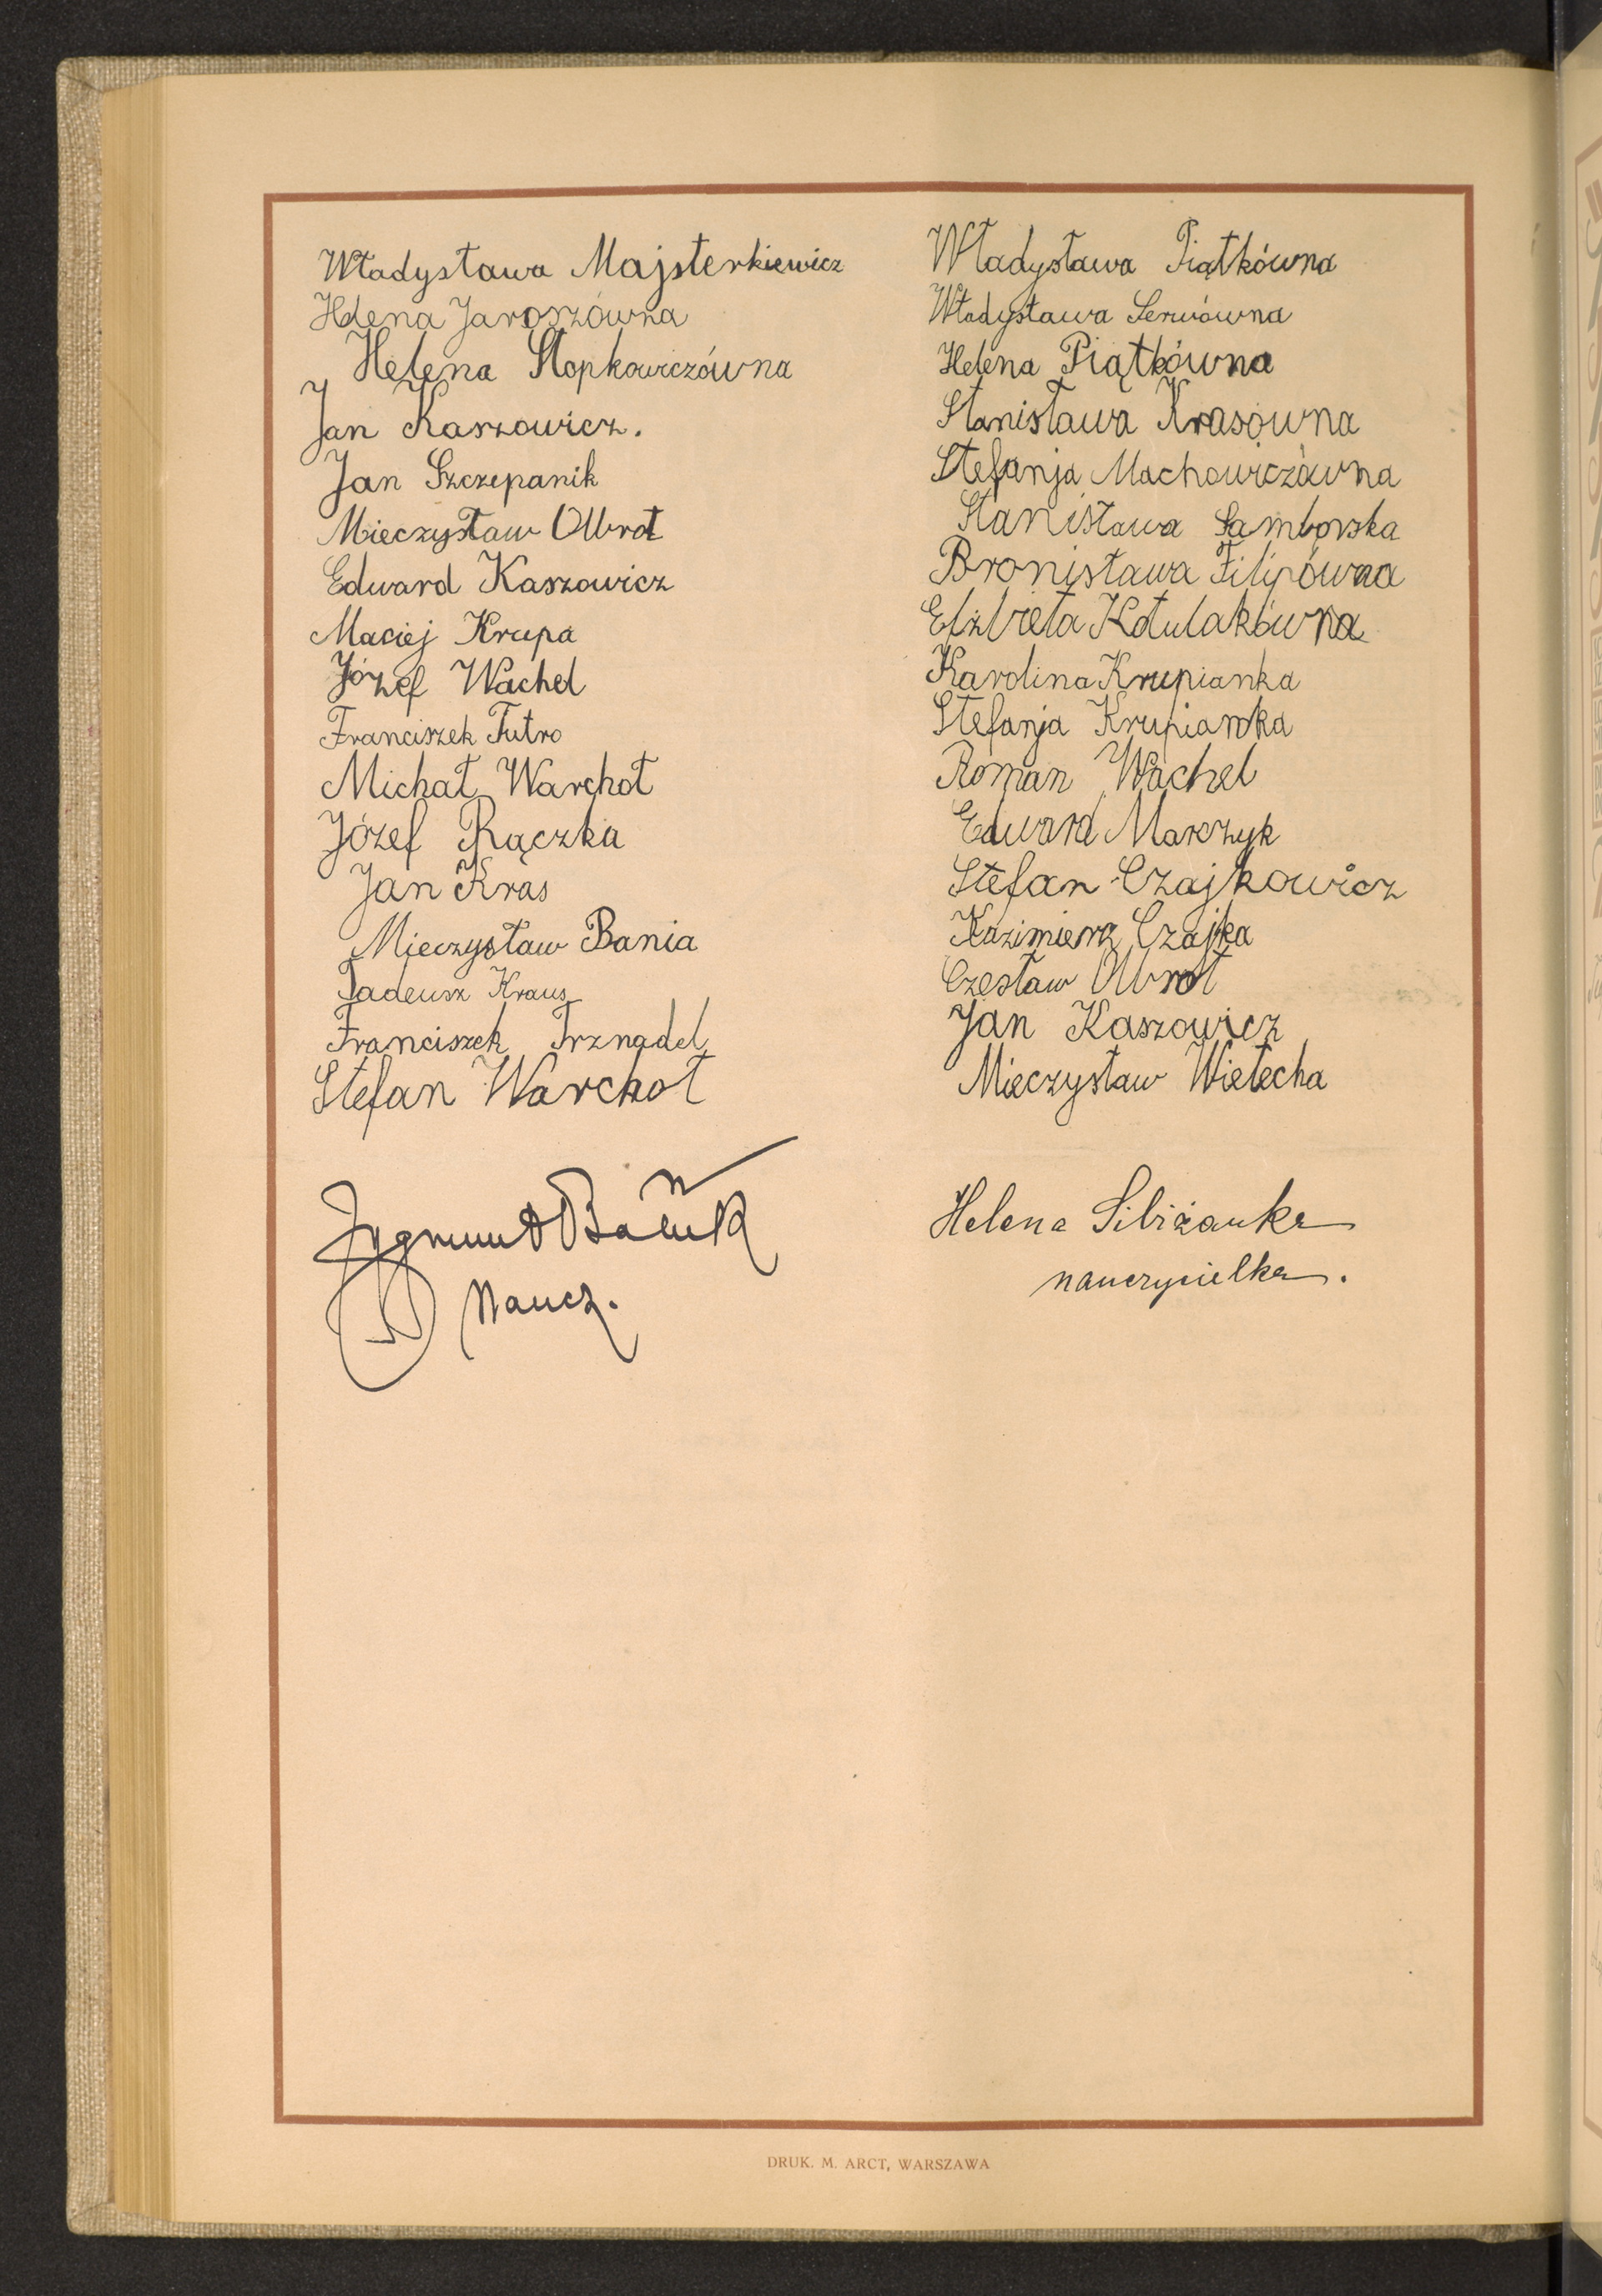 Władysława Majsterkiewicz
Helena Jaroszówna
Helena Stopkowiczówna
Jan Kaszowicz.
Jan Szczepanik
Mieczysław Olbrot
Edward Kaszowicz
Maciej Krupa
Józef Wachel
Franciszek Futro
Michał Warchoł
Józef Rączka
Jan Kras
Mieczysław Bania
Tadeusz Kraus
Franciszek Trznadel
Stefan Warchoł
Zygmunt
Naucz.
Władysława Piątkówna
Władysława Serwówna
Helena Piątkówna
Stanisława Krasówna
Stefanja Machowiczówna
Stanisława Samborska
Bronisława Filipówna
Elżbieta Kotulakówna
Karolina Krupianka
Stefanja Krupianka
Roman Wachel
Edward Marczyk
Stefan Czajkowicz
Kazimierz Czajka
Czesław Olbrot
Jan Kaszowicz
Mieczysław Wielecha
Helena Sibiżanka
nauczycielka.
DRUK. M. ARCT, WARSZAWA